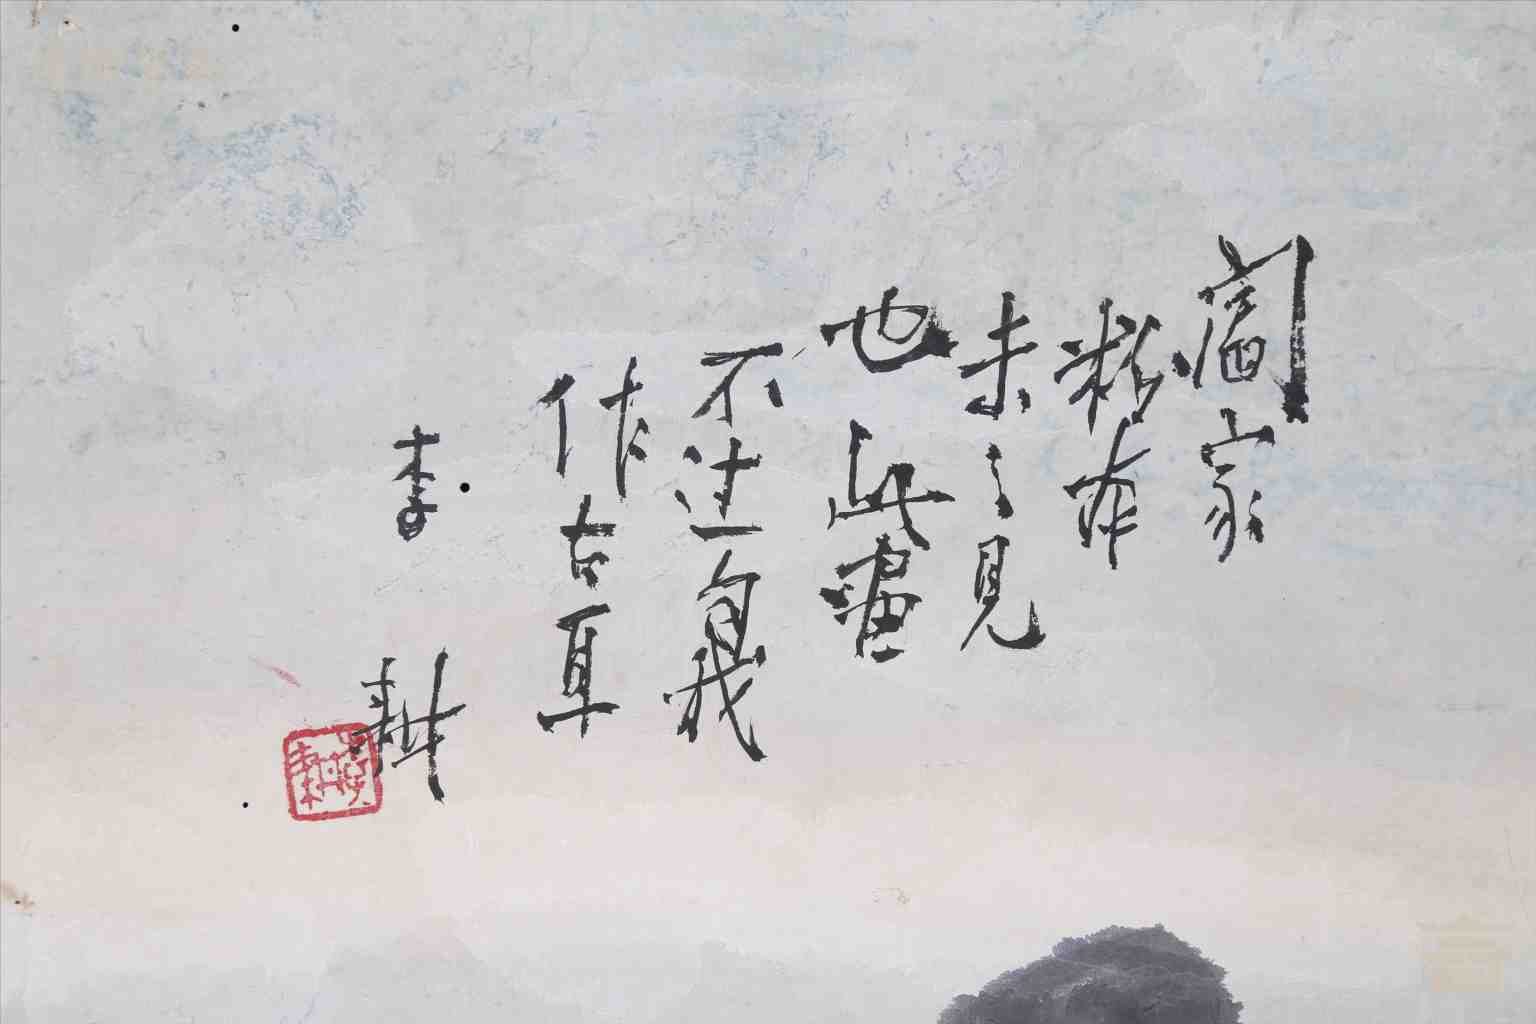 閻家
粉本
未之見
也此畫
不过自我
作古耳
李耕